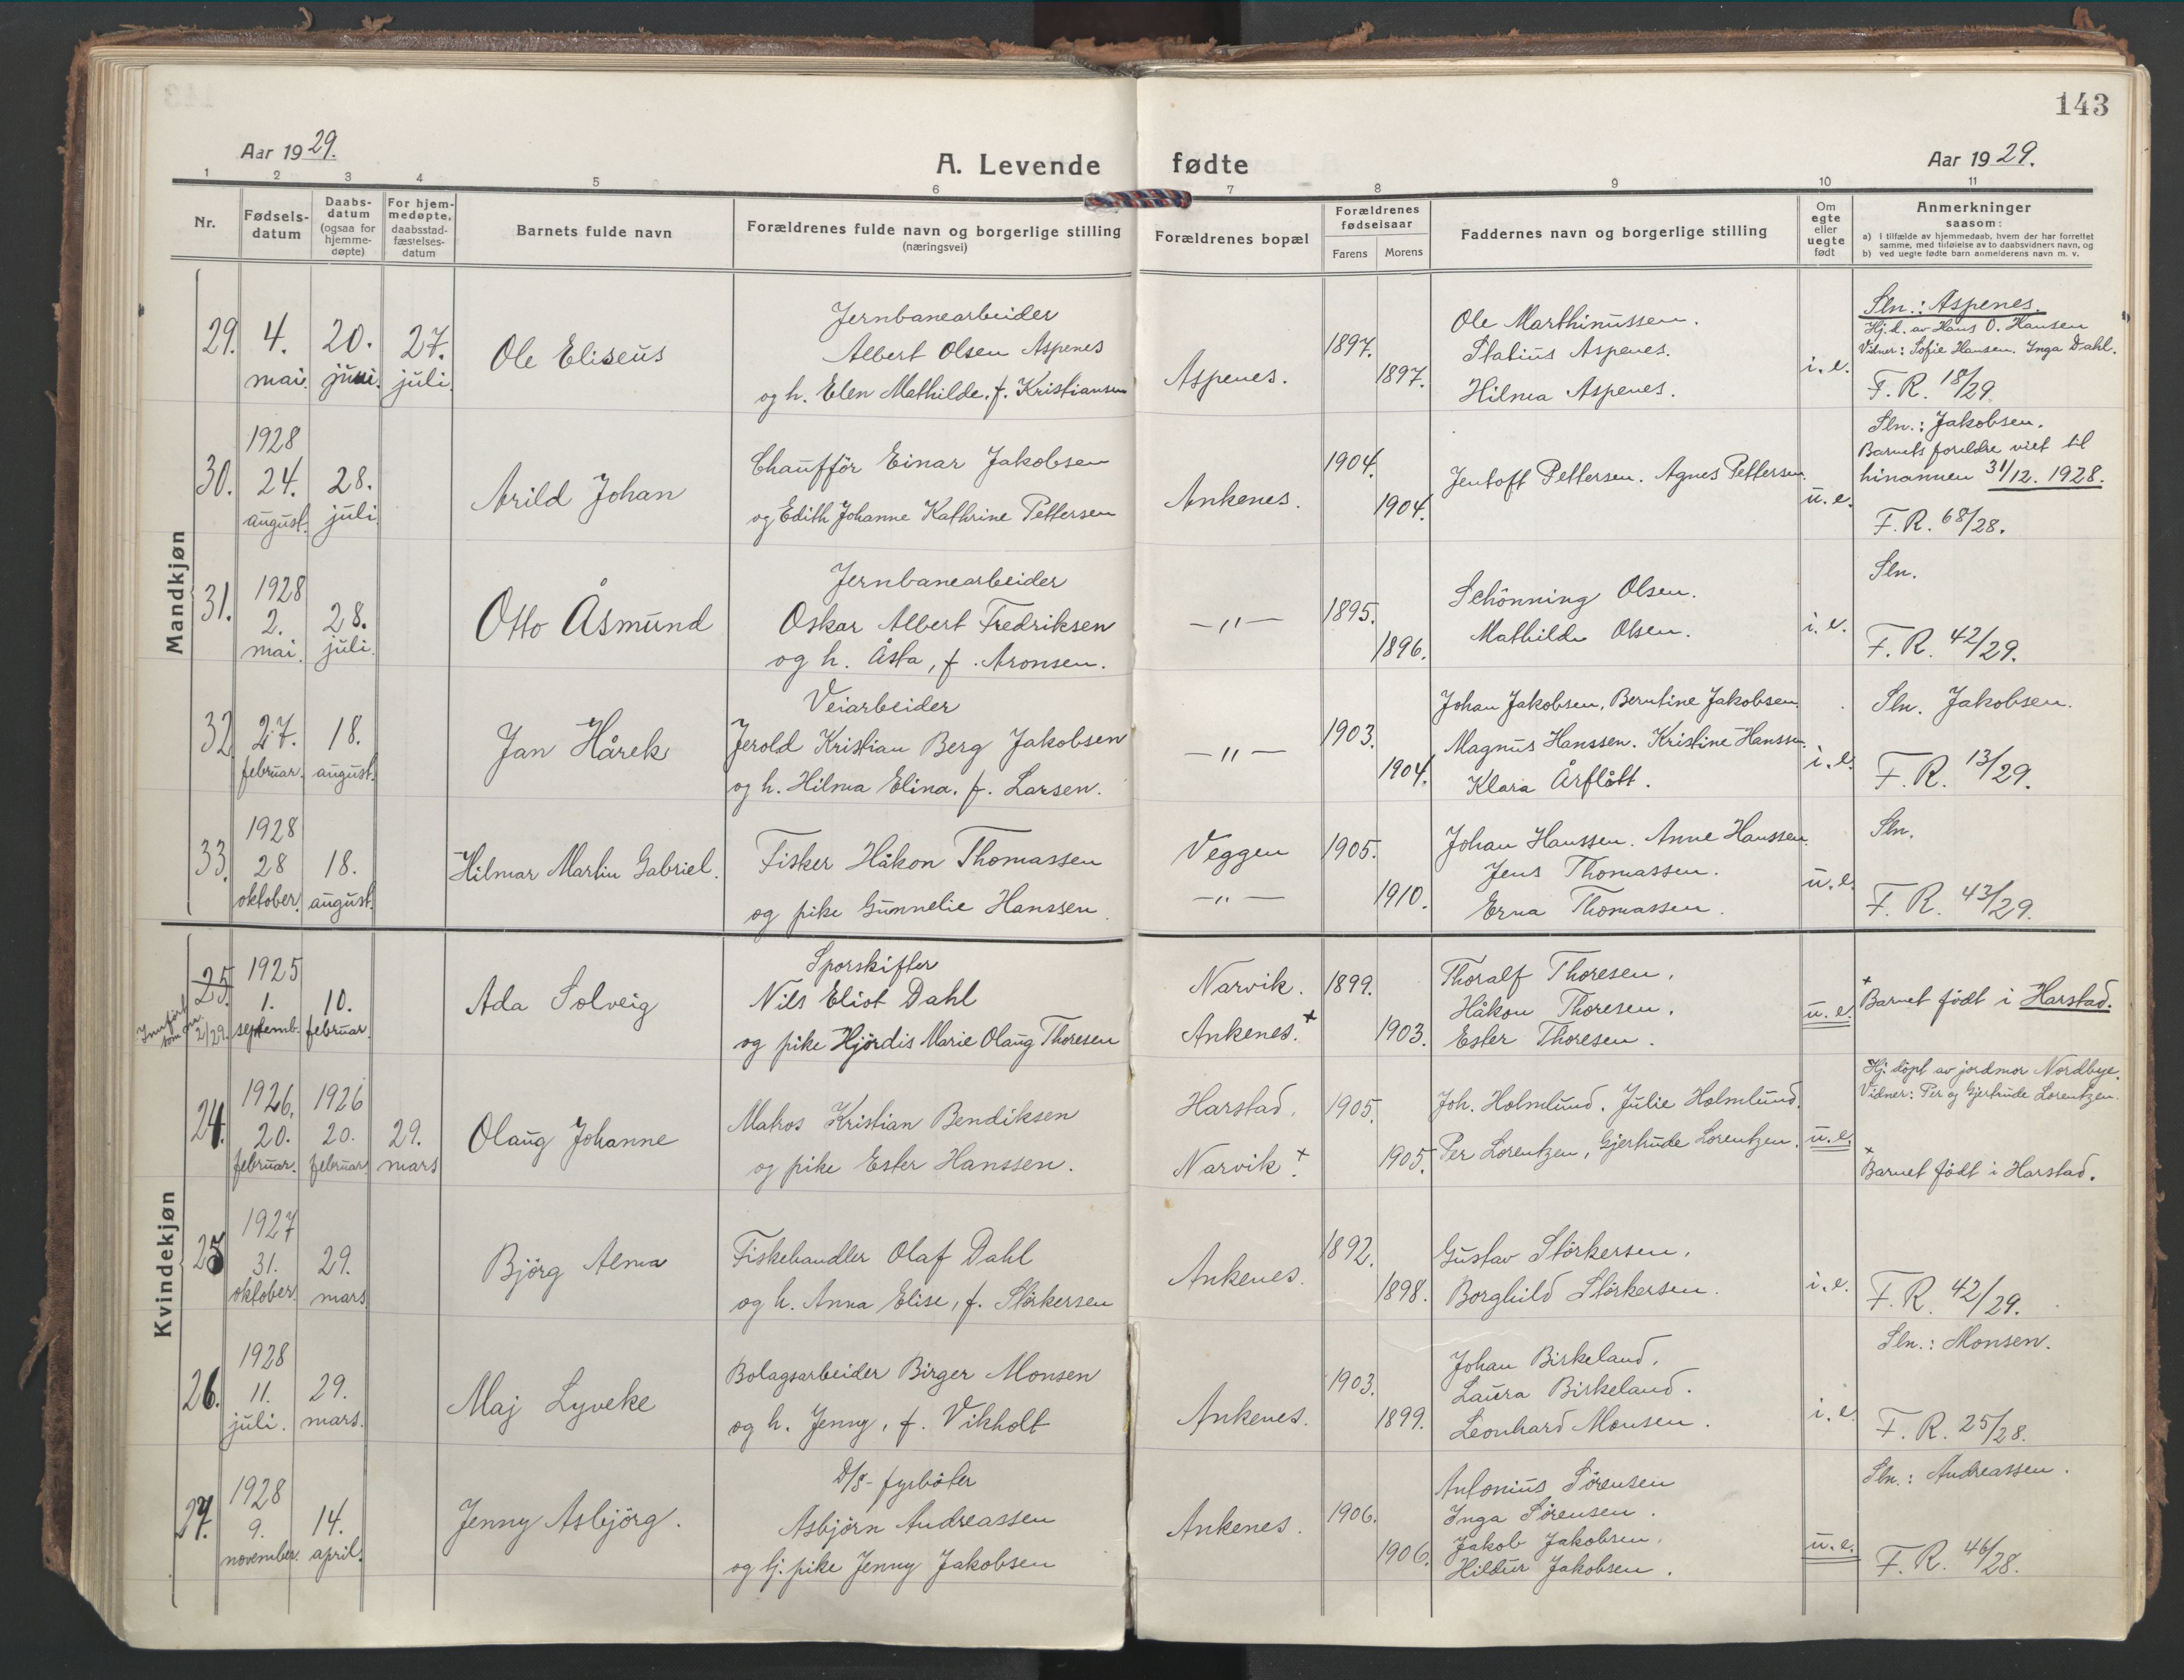 143
Aar 1929.
A. Levende fødte
Aar 1929.
1 2 3 4 5 6 7 8 9 10 11
Nr.
Fødsels-
datum
Daabs-
datum
(ogsaa for
hjemme-
døpte)
For hjem-
medøpte,
daabsstad-
fæstelses-
datum
Barnets fulde navn
Forældrenes fulde navn og borgerlige stilling
(næringsvei)
Forældrenes bopæl
Forældrenes
fødselsaar
Farens Morens
Faddernes navn og borgerlige stilling
Om
egte
eller
uegte
født
Anmerkninger
saasom:
a) i tilfælde av hjemmedaab, hvem der har forrettet
samme, med tilføielse av to daabsvidners navn, og
b) ved uegte fødte barn anmelderens navn m. v.
Mandkjøn
29. 4. mai. 20. juni. 27. juli.
Ole Eliseus
Jernbanearbeider
Albert Olsen Aspenes
og h. Elen Mathilde, f. Kristiansen
Aspenes.
1897.
1897.
Ole Marthinussen.
Statius Aspenes.
Hilma Aspenes.
i. e.
Sln.: Aspenes.
Hj. d. av Hans O. Hansen
Vidner: Sofie Hansen. Inga Dahl.
F. R. 18/29
30. 1928 24. august. 28. juli
Arild Johan
Chaufför Einar Jakobsen
og Edith Johanne Kathrine Pettersen
Ankenes.
1904.
1904.
Jentoft Pettersen. Agnes Pettersen
u. e.
Sln.: Jakobsen.
Barnets foreldre viet til
hinannen 31/12. 1928.
F. R. 68/28.
31. 1928 2. mai. 28. juli.
Otto Åsmund
Jernbanearbeider
Oskar Albert Fredriksen
og h. Åsta, f. Aronsen.
—"—
1895.
1896.
Schönning Olsen.
Mathilde Olsen.
i. e.
Sln.
F. R. 42/29.
32 27. februar. 18. august.
Jan Hårek
Veiarbeider
Jerold Kristian Berg Jakobsen
og h. Hilma Elina. f. Larsen.
—"—
1903.
1904.
Johan Jakobsen, Berntine Jakobsen.
Magnus Hanssen. Kristine Hanssen.
Klara Årflått.
i. e.
Sln. Jakobsen.
F. R. 13/29.
33. 1928 28 oktober. 18. august.
Hilmar Martin Gabriel.
Fisker Håkon Thomassen
og pike Gunnelie Hanssen.
Veggen
—"—
1905.
1910.
Johan Hanssen. Anne Hanssen.
Jens Thomassen.
Erna Thomassen.
u. e.
Sln.
F. R. 43/29.
Kvindekjøn
25. 1925 1. septemb. 10. februar.
Innført som nr. 2/29.
Ada Solveig
Sporskifter
Nils Eliot Dahl
og pike Hjördis Marie Olaug Thoresen
Narvik.
Ankenes.+
1899.
1903.
Thoralf Thoresen.
Håkon Thoresen.
Ester Thoresen.
u. e.
+
Barnet födt i Harstad.
24. 1926. 20. februar. 1926 20. februar. 29. mars
Olaug Johanne
Matros Kristian Bendiksen
og pike Ester Hanssen.
Harstad.
Narvik.+
1905.
1905.
Joh. Holmlund. Julie Holmlund.
Per Lorentzen, Gjertrude Lorentzen.
u. e.
Hj. döpt av jordmor Nordbye.
Vidner: Per og Gjertrude Lorentzen.
+
Barnet födt i Harstad.
25 1927 31. oktober. 29. mars
Björg Alma
Fiskehandler Olaf Dahl
og h. Anna Elise, f. Störkersen
Ankenes.
1892.
1898.
Gustav Störkersen.
Borghild Störkersen.
i. e.
F. R. 42/29.
26. 1928 11. juli. 29. mars.
Maj Lyveke
Bolagsarbeider Birger Monsen
og h. Jenny, f. Vikholt
Ankenes.
1903.
1899.
Johan Birkeland.
Laura Birkeland.
Leonhard Monsen.
i. e.
Sln.: Monsen.
F. R. 25/28.
27. 1928 9. november. 14. april.
Jenny Asbjörg.
D/S-fyrböter
Asbjörn Andreassen
og hj. pike Jenny Jakobsen
Ankenes.
1906.
1906.
Antonius Sörensen
Inga Sörensen.
Jakob Jakobsen.
Hildur Jakobsen.
u. e.
Sln.: Andreassen.
F. R. 46/28.